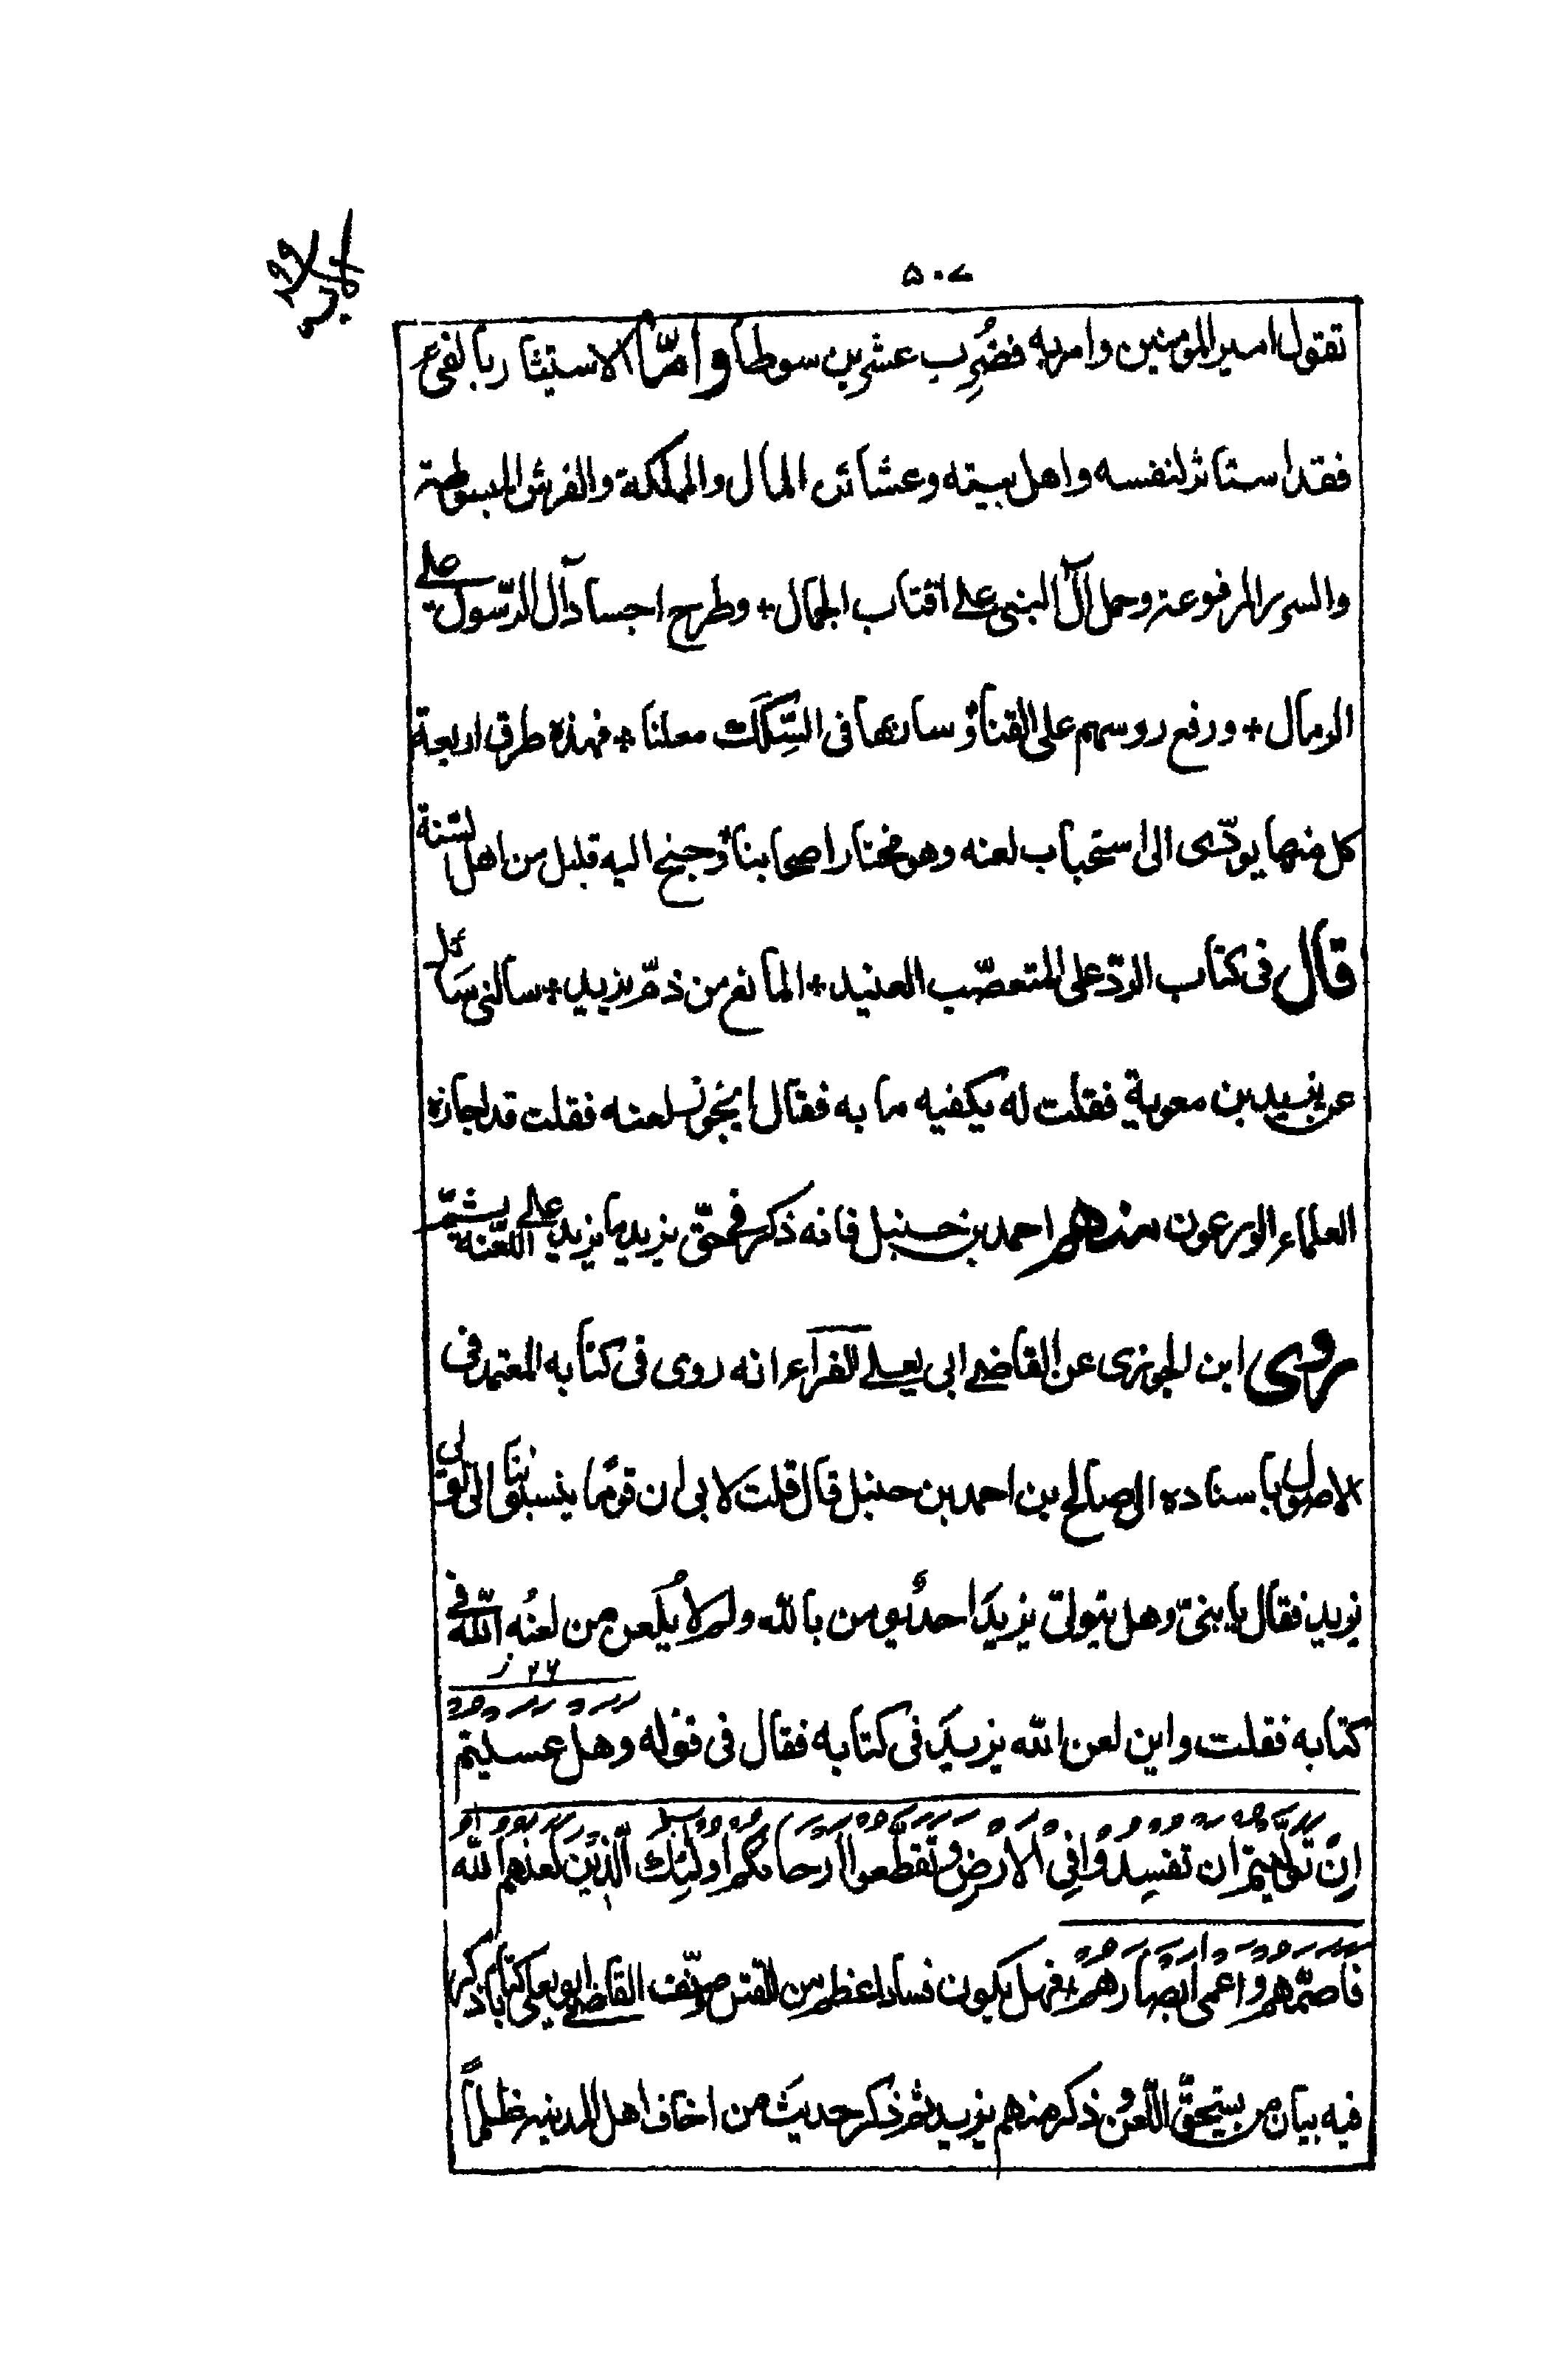 ۵۰۷
تقول امير المؤمنين وامر به فضُرِب عشرين سوطا وامّا الاستيثار بالفىء
فقد استاثر لنفسه واهل بيته وعشائره المال والمملكة والفرش المبسوطة
والسرر المرفوعة وحمل آل النبى على اقتاب الجمال + وطرح اجساد آل الرّسول على
الرمال + ورفع روسهم على القناة وسار بها فى السِّكَك معلنا + فهذه طرق اربعة
كل منها يودّى الى استحباب لعنه وهو مختار اصحابنا وجنح اليه قليل من اهل السّنة
قال فى كتاب الردّ على المتعصّب العنيد + المانع من ذمّ يزيد + سالنى سَائل
عن يزيد بن معوية فقلت له يكفيه ما به فقال ايجوز لعنه فقلت قد اجازه
العلماء الورعون منهم احمد بن حنبل فانه ذكر فى حقّ يزيد ما يزيد على اللّعنة ثمّ
روى ابن الجوزى عن القاضى ابى يعلى الفراء انه روى فى كتابه المعتمد فى
الاصول باسناده الى صالح بن احمد بن حنبل قال قلت لابى ان قومًا ينسبوننا الى تولى
يزيد فقال يا بنىّ وهل يتولىّ يزيدَ احدٌ يومن بالله ولم لا يُلعن من لعنُه اللّه فى
كتابه فقلت واين لعن الله يزيدَ فى كتابه فقال فى قوله وهل عسيتم
۲۶
اِنْ تَولَّيتم ان تفسِدُوْا فِى الْاَرْضِ وتُقطِّعوا اَرْحَامَكُم اولٰئِك الّذِيْنَ لَعنهم الله
فاصَمَّهم واعْمى ابْصارهُمْ + فهل يكون فساد اعظم من القتل وصنّف القاضى ابو يعلى كتابا ذكر
فيه بيان من يستحقّ اللّعن وذكر منهم يزيد ثم ذكر حديث من اخاف اهل المدينة ظلماً